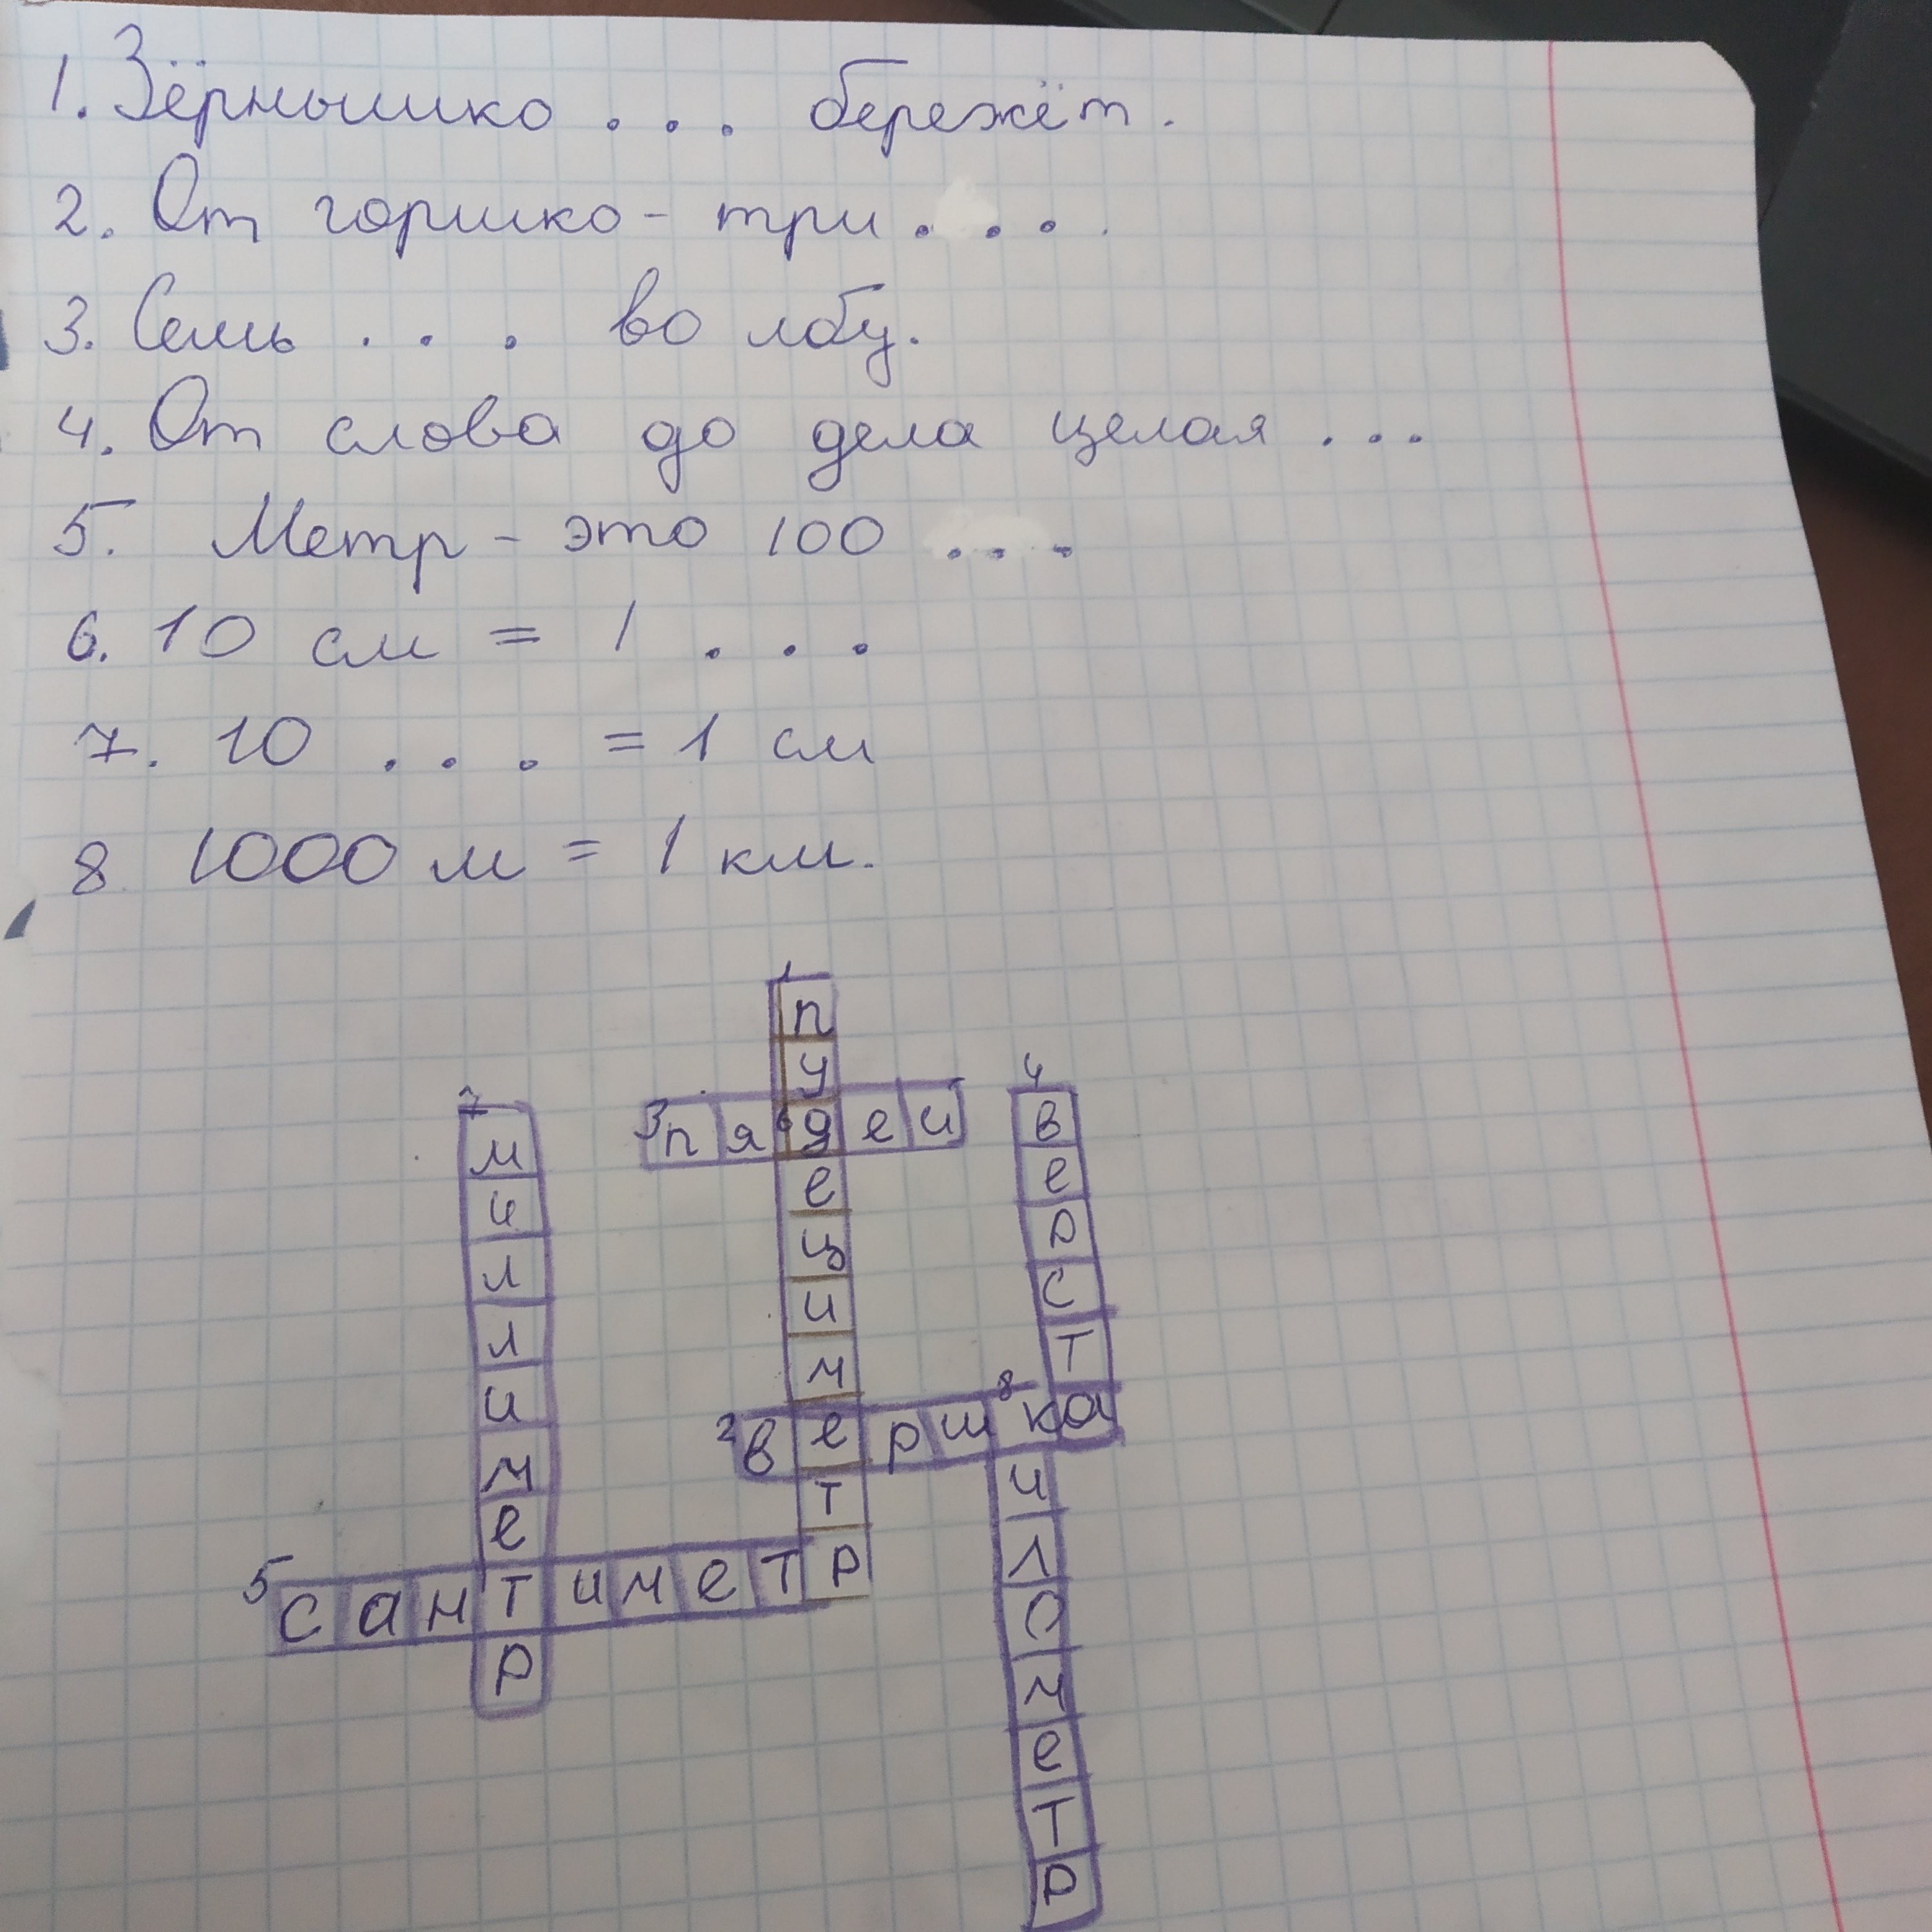 1. Зёрнышко . . . бережёт.
2. От горшко - три . . . .
3. Семь . . . во лбу.
4. От слова до дела целая . . .
5. Метр - это 100 . . .
6. 10 см = 1 . . .
7. 10 . . . = 1 см
8 1000 м = 1 км.
1 пуд
3 пядей
6 дециметр
4 верста
7 миллиметр
2 вершка
8 километр
5 сантиметр